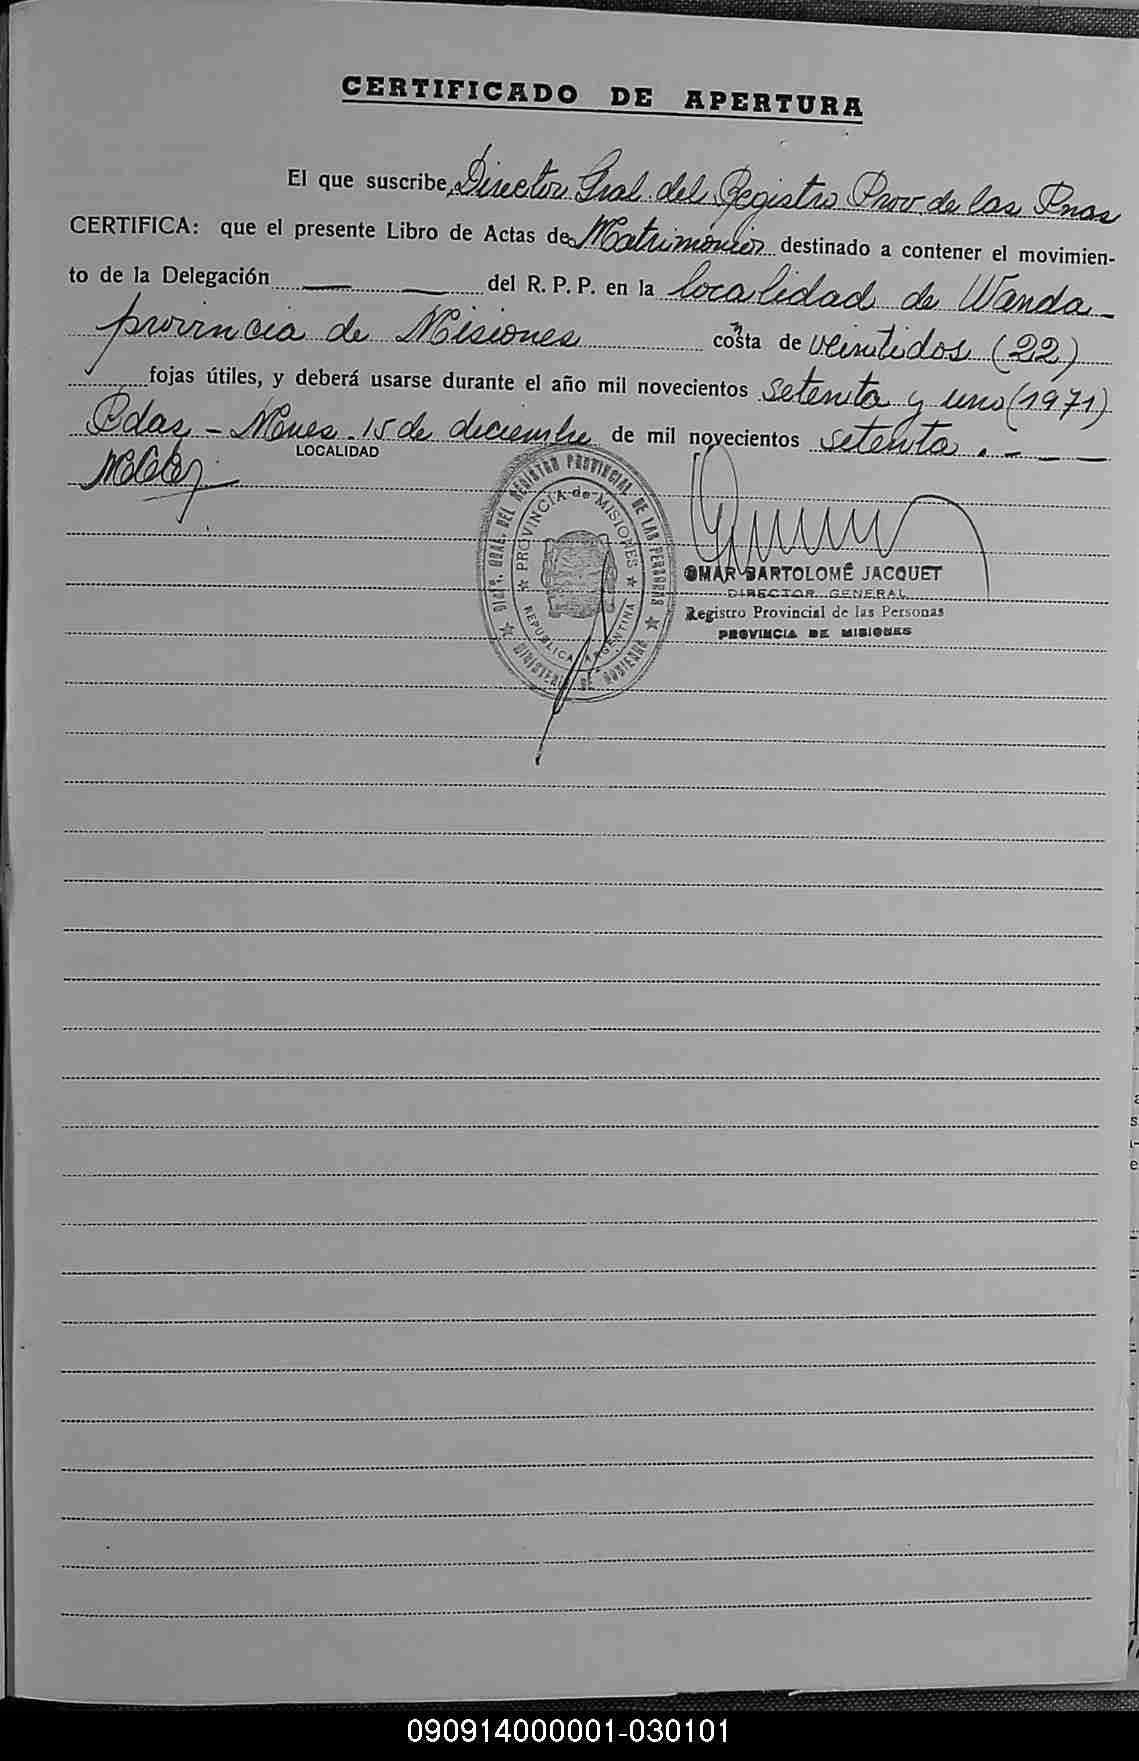 CERTIFICADO DE APERTURA
El que suscribe, Director Gral. del Registro Prov. de las Pnas
CERTIFICA: que el presente Libro de Actas de Matrimonios destinado a contener el movimien-
to de la Delegación — — del R. P. P. en la localidad de Wanda -
provincia de Misiones consta de veintidos (22)
fojas útiles, y deberá usarse durante el año mil novecientos setenta y uno (1971)
Pdas - Mnes. 15 de diciembre de mil novecientos setenta . - — —
LOCALIDAD
DIRC. GRAL. DEL REGISTRO PROVINCIAL DE LAS PERSONAS
PROVINCIA de MISIONES
REPUBLICA ARGENTINA
MINISTERIO DE GOBIERNO
OMAR BARTOLOMÉ JACQUET
DIRECTOR GENERAL
Registro Provincial de las Personas
PROVINCIA DE MISIONES
090914000001-030101